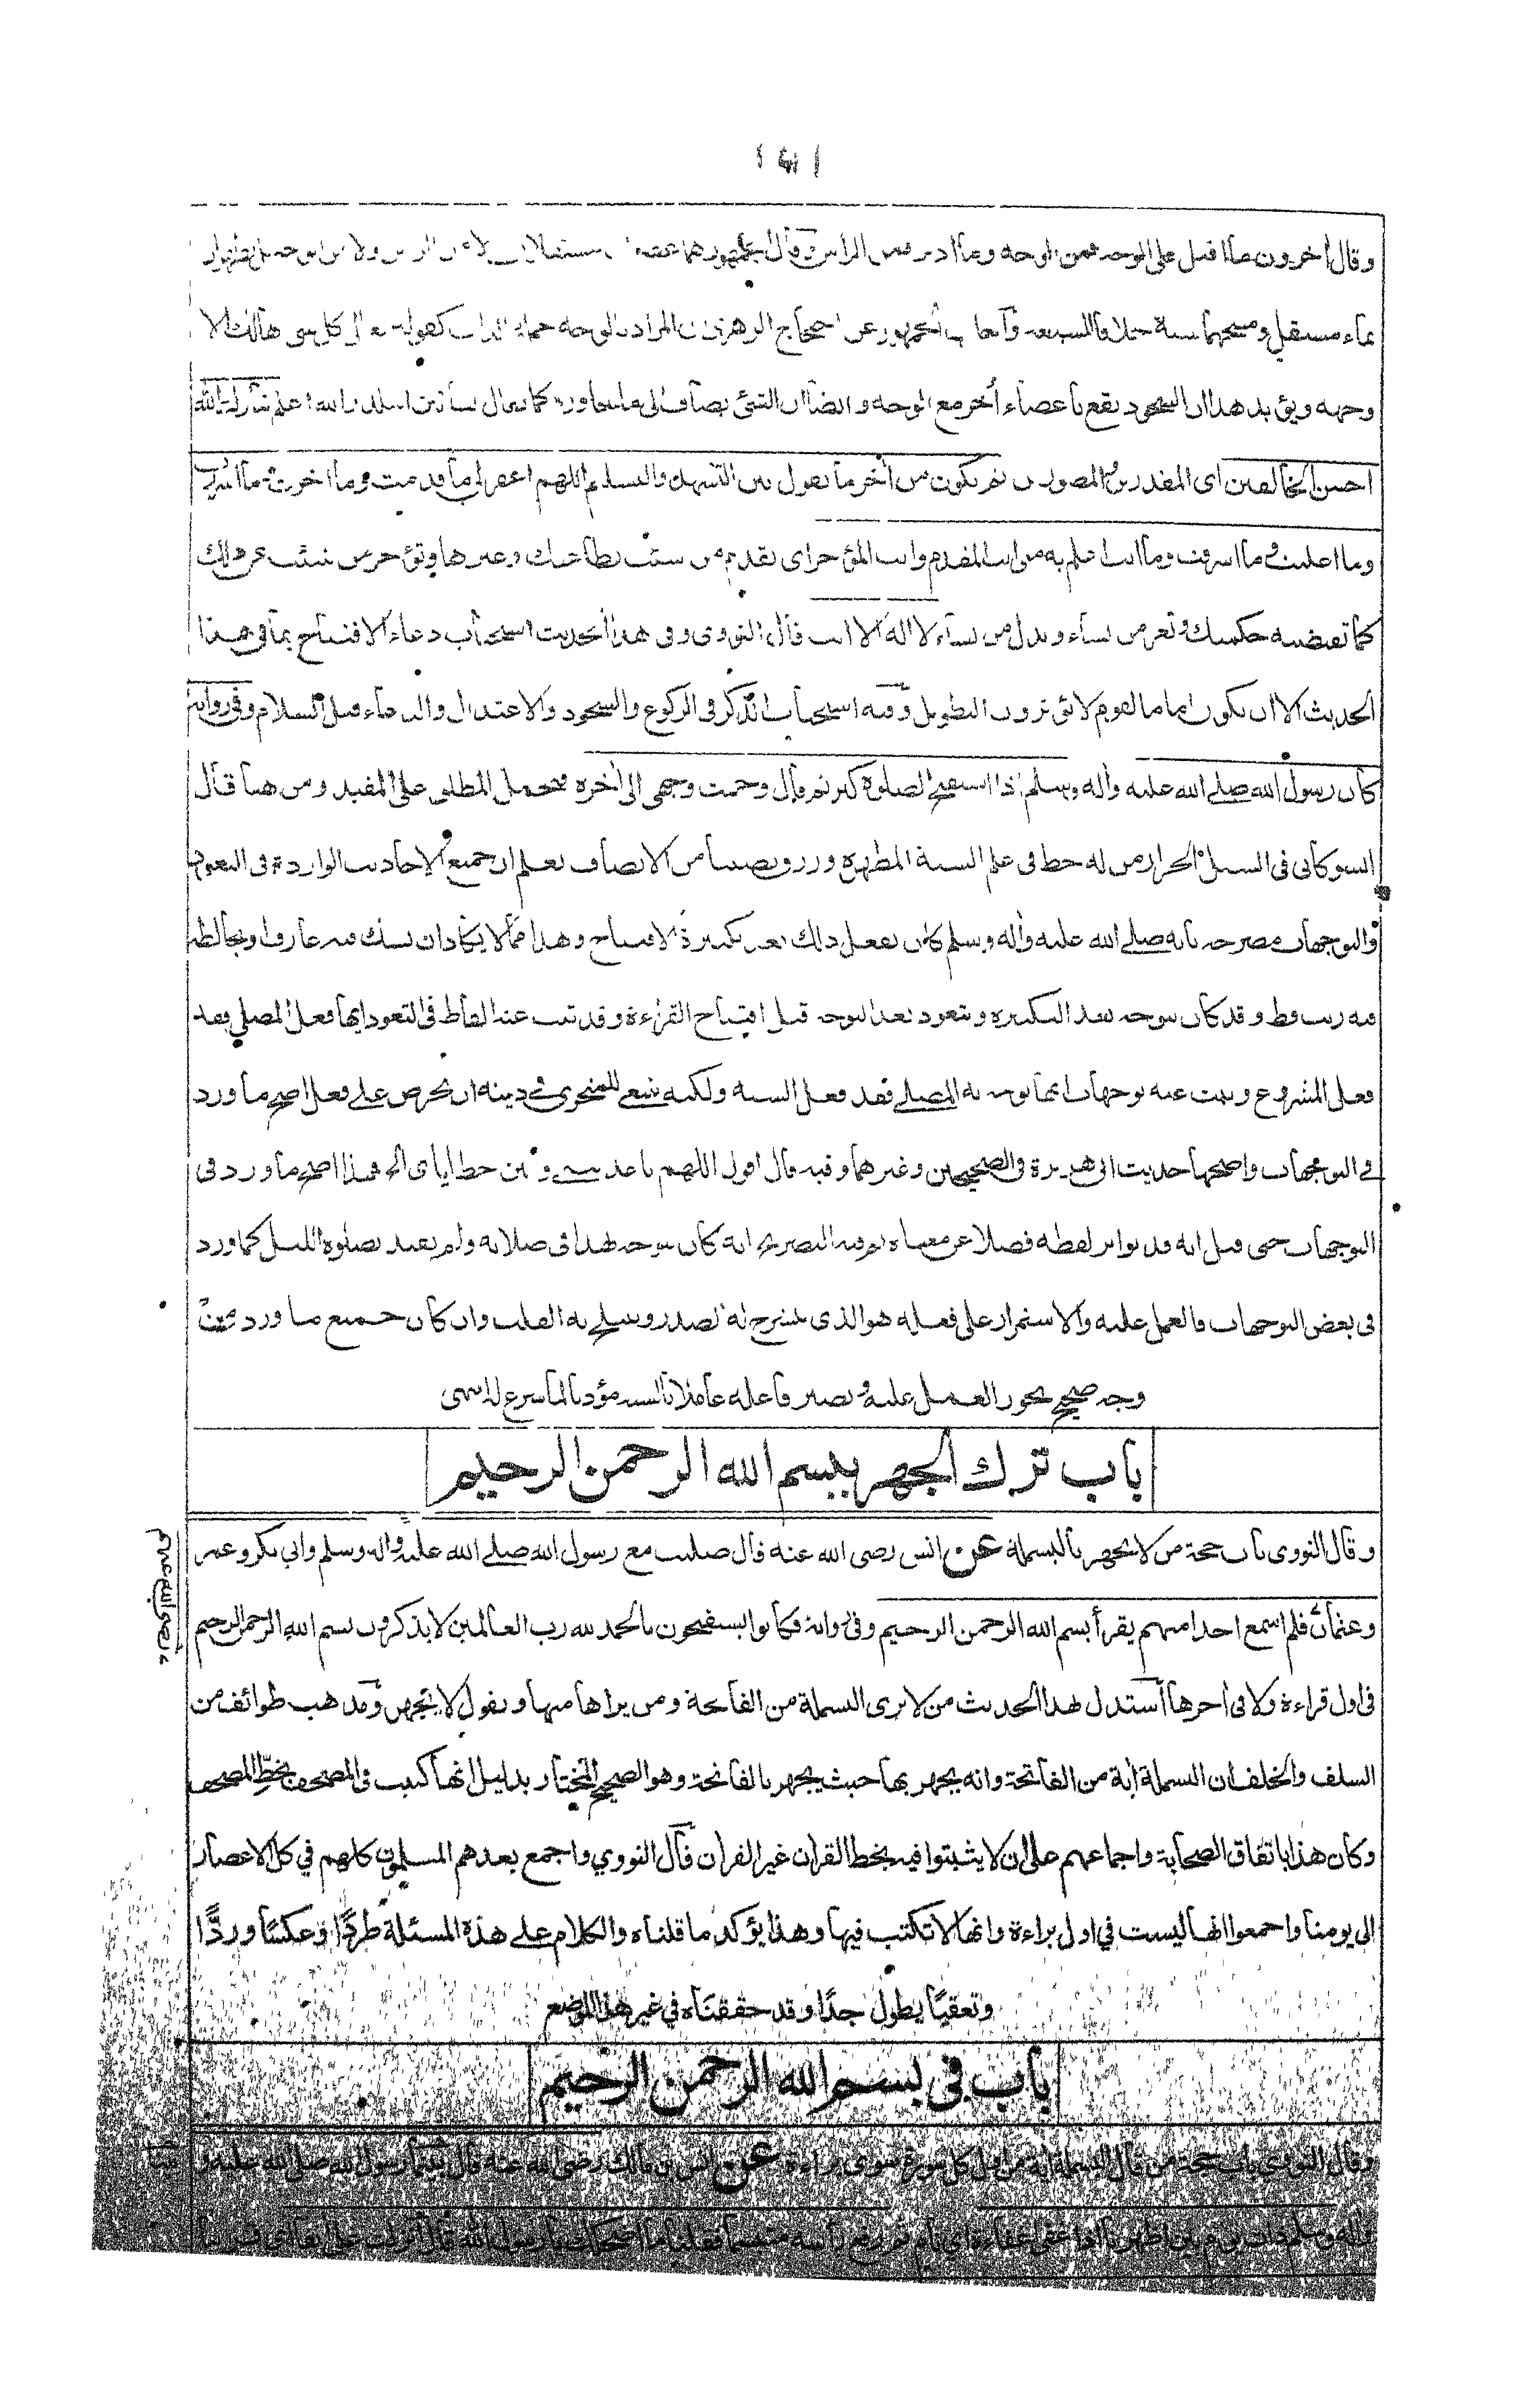 وقال اخرون ما اقبل على الوجه فمن الوجه وما ادبر فمن الراس وقال الجمهور هما عضوان مستقلان لا من الراس ولا من الوجه بل يطهران
بماء مستقل ومسحهما سنة خلافا للشيعة واجاب الجمهور عن احتجاج الزهري ان المراد بالوجه جملة الذات كقوله تعالى كل شي هالك الا
وجهه ويؤيد هذا ان السجود يقع باعضاء أخر مع الوجه وايضا ان الشئ يضاف الى ما يجاوره كما يقال بساتين البلد والله اعلم تبارك الله
احسن الخالقين اى المقدرين والمصورين ثم يكون من أخر ما يقول بين التشهد والتسليم اللهم اغفر لى ما قدمت وما اخرت وما اسررت
وما اعلنت وما اسرفت وما انت اعلم به منى انت المقدم وانت المؤخر اى تقدم من شئت بطاعتك وغيرها وتؤخر من شئت عن ذلك
كما تقتضيه حكمتك وتعز من تشاء وتذل من تشاء لا اله الا انت قال النووى وفى هذا الحديث استحباب دعاء الافتتاح بما فى هذا
الحديث الا ان يكون اماما لقوم لا يؤثرون التطويل وفيه استحباب الذكر فى الركوع والسجود والاعتدال والدعاء قبل السلام وفى رواية
كان رسول الله صلى الله عليه وأله وسلم اذا استفتح الصلوة كبر ثم قال وجهت وجهى الى أخره فيحمل المطلق على المقيد ومن هنا قال
الشوكانى فى السيل الجرار من له حظ فى علم السنة المطهرة ورزق نصيبا من الانصاف يعلم ان جميع الاحاديث الواردة فى التعوذ
والتوجهات مصرحة بانه صلى الله عليه وأله وسلم كان يفعل ذلك بعد تكبيرة الافتتاح وهذا مما لا يكاد ان يشك فيه عارف او يخالطه
فيه ريب قط وقد كان يتوجه بعد التكبيرة ويتعوذ بعد التوجه قبل افتتاح القراءة وقد ثبت عنه الفاظ فى التعوذ ايها فعل المصلى فقد
فعل المشروع وثبت عنه توجهات ايها توجه به المصلى فقد فعل السنة ولكنه ينبغى للمتحرى فى دينه ان يحرص على فعل اصح ما ورد
فى التوجهات واصحها حديث ابى هريرة فى الصحيحين وغيرهما وفيه قال اقول اللهم باعد بينى وبين خطاياى الخ فهذا اصح ما ورد فى
التوجهات حتى قيل انه قد تواتر لفظه فضلا عن معناه ثم فيه التصريح انه كان يتوجه بهذا فى صلاته ولم يقيد بصلوة الليل كما ورد
فى بعض التوجهات فالعمل عليه والاستمرار على فعله هو الذى ينشرح له الصدر ويثلج به القلب وان كان جميع ما ورد من
وجه صحيح يجوز العمل عليه ويصير فاعله عاملا بالسنة مؤديا لما شرع له انتهى
باب ترك الجهر ببسم الله الرحمن الرحيم
وقال النووى باب حجة من لا يجهر بالبسملة عن انس رضى الله عنه قال صليت مع رسول الله صلى الله عليه وأله وسلم وابي بكر وعمر
رضي الله عنهم
وعثمان فلم اسمع احدا منهم يقرأ بسم الله الرحمن الرحيم وفى رواية فكانوا يستفتحون بالحمد لله رب العالمين لا يذكرون بسم الله الرحمن الرحيم
فى اول قراءة ولا فى أخرها أستدل بهذا الحديث من لا يرى البسملة من الفاتحة ومن يراها منها ويقول لا يجهر وقد ذهب طوائف من
السلف والخلف ان البسملة أية من الفاتحة وانه يجهر بها حيث يجهر بالفاتحة وهو الصحيح المختار بدليل انها كتبت فى المصحف بخط المصحف
وكان هذا باتفاق الصحابة واجماعهم على ان لا يثبتوا فيه بخط القرأن غير القرأن قال النووي واجمع بعدهم المسلمون كلهم في كل الاعصار
الى يومنا واجمعوا انها ليست في اول براءة وانها لا تكتب فيها وهذا يؤكد ما قلناه والكلام على هذه المسئلة طردًا وعكسًا وردًّا
وتعقبًا يطول جدًا وقد حققناه في غير هذا الموضع
باب في بسم الله الرحمن الرحيم
وقال النووي باب حجة من قال البسملة أية من اول كل سورة سوى براءة عن انس بن مالك رضى الله عنه قال بينما رسول الله صلى الله عليه و
وأله وسلم ذات يوم بين اظهرنا اذ اغفى اغفاءة اي نام ثم رفع رأسه متبسما فقلنا ما اضحكك يا رسول الله قال أنزلت على أنفا اى قريبا